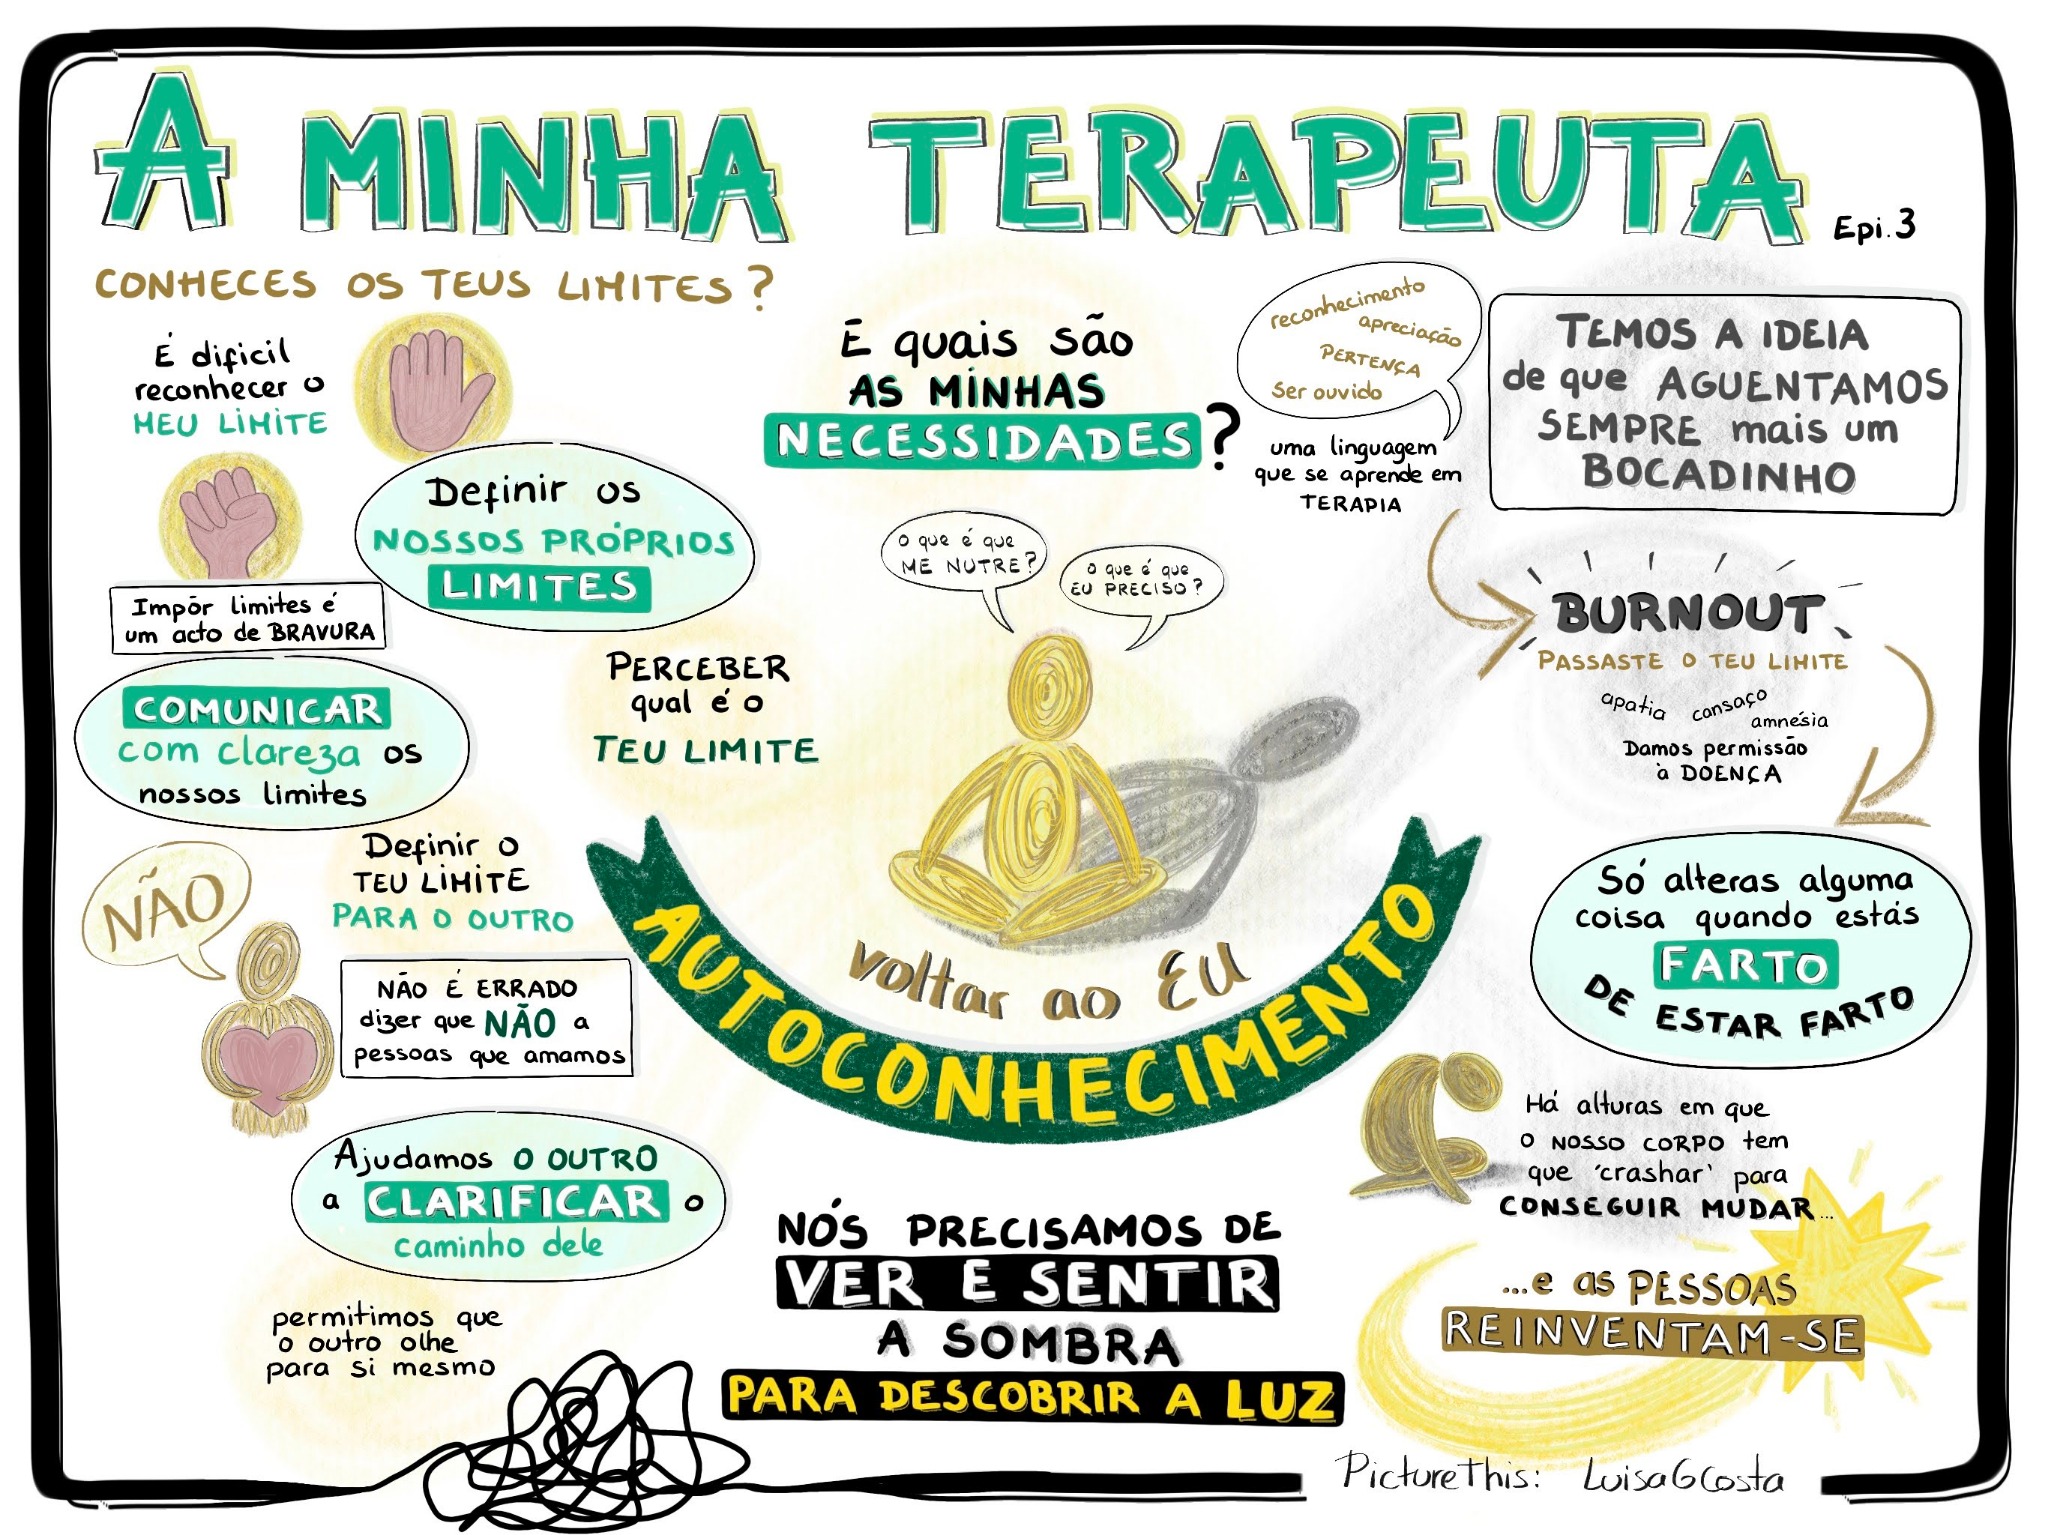 A MINHA TERAPEUTA
Epi. 3
CONHECES OS TEUS LIMITES?
É dificil
reconhecer o
MEU LIMITE
Definir os
NOSSOS PRÓPRIOS
LIMITES
Impôr limites é
um acto de BRAVURA
COMUNICAR
com clareza os
nossos limites
PERCEBER
qual é o
TEU LIMITE
NÃO
Definir o
TEU LIMITE
PARA O OUTRO
NÃO É ERRADO
dizer que NÃO a
pessoas que amamos
Ajudamos O OUTRO
a CLARIFICAR o
caminho dele
permitimos que
o outro olhe
para si mesmo
E quais são
AS MINHAS
NECESSIDADES?
reconhecimento
apreciação
PERTENÇA
Ser ouvido
uma linguagem
que se aprende em
TERAPIA
O que é que
ME NUTRE?
O que é que
EU PRECISO?
voltar ao EU
AUTOCONHECIMENTO
NÓS PRECISAMOS DE
VER E SENTIR
A SOMBRA
PARA DESCOBRIR A LUZ
TEMOS A IDEIA
de que AGUENTAMOS
SEMPRE mais um
BOCADINHO
BURNOUT
PASSASTE O TEU LIMITE
apatia cansaço
amnésia
Damos permissão
à DOENÇA
Só alteras alguma
coisa quando estás
FARTO
DE ESTAR FARTO
Há alturas em que
o NOSSO CORPO tem
que 'crashar' para
CONSEGUIR MUDAR...
...e as PESSOAS
REINVENTAM-SE
PictureThis: LuisaGCosta